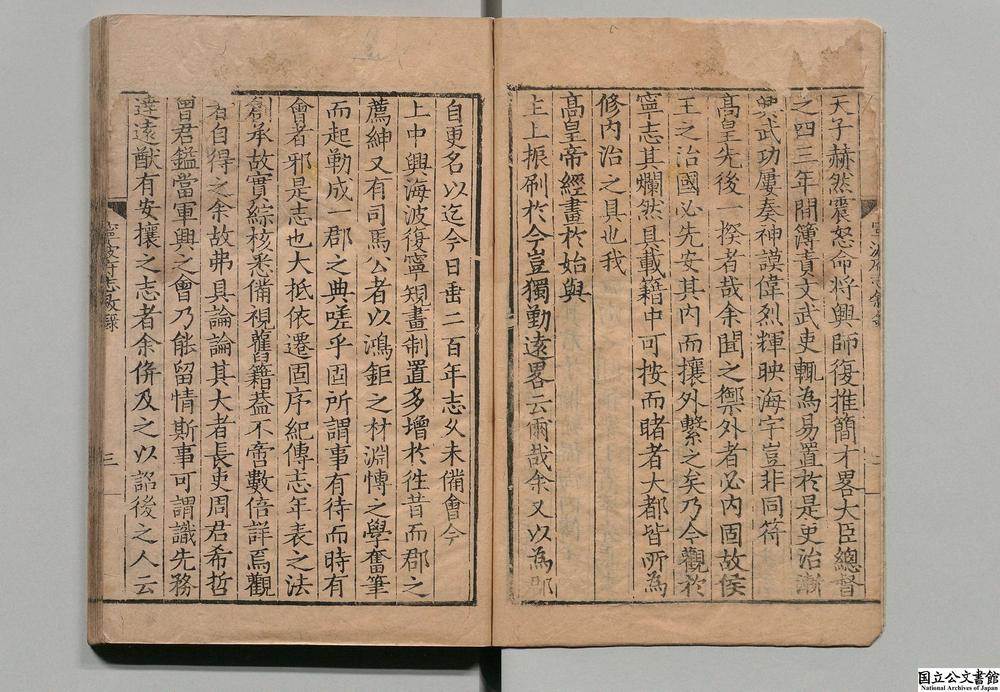 天子赫然震怒命將興師復推簡才畧大臣總督
之四三年間簿責文武吏輒為易置於是吏治漸
興武功屢奏神謨偉烈輝映海宇豈非同符
髙皇先後一揆者哉余聞之禦外者必内固故侯
王之治國必先安其内而攘外繫之矣乃今觀於
寧志其爛然具載籍中可按而睹者大都皆所為
修内治之具也我
髙皇帝經畫於始與
主上振刷於今豈獨勤遠畧云爾哉余又以為郡
自更名以迄今日垂二百年志久未備會今
上中興海波復寧規畫制置多增於徃昔而郡之
薦紳又有司馬公者以鴻鉅之材淵慱之學奮筆
而起勒成一郡之典嗟乎固所謂事有待而時有
會者邪是志也大抵依遷固序紀傳志年表之法
創承故實綜核悉備視舊籍葢不啻數倍詳焉觀
者自得之余故弗具論論其大者長吏周君希哲
曾君鎰當軍興之會乃能留情斯事可謂識先務
逹遠猷有安攘之志者余併及之以詔後之人云
寧波府志敘錄
三
国立公文書館
National Archives of Japan